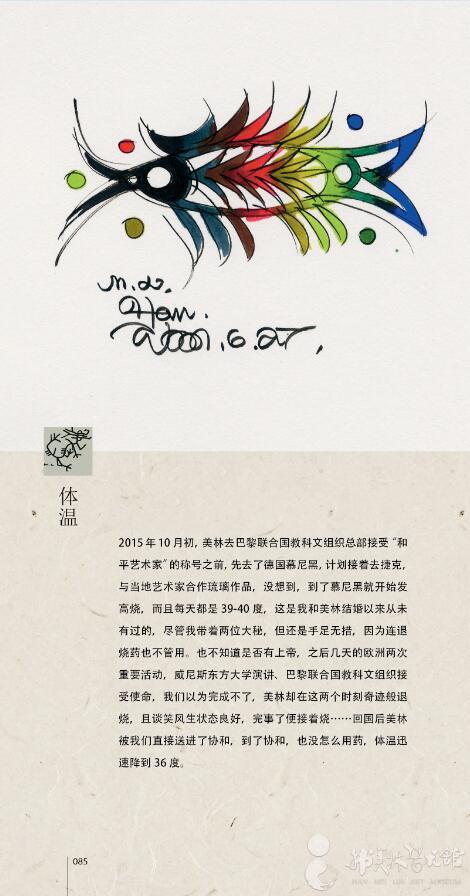 m.L.
Han.
2001.6.27,
体温
2015年10月初，美林去巴黎联合国教科文组织总部接受“和
平艺术家”的称号之前，先去了德国慕尼黑，计划接着去捷克，
与当地艺术家合作琉璃作品，没想到，到了慕尼黑就开始发
高烧，而且每天都是39-40度，这是我和美林结婚以来从未
有过的，尽管我带着两位大秘，但还是手足无措，因为连退
烧药也不管用。也不知道是否有上帝，之后几天的欧洲两次
重要活动，威尼斯东方大学演讲、巴黎联合国教科文组织接
受使命，我们以为完成不了，美林却在这两个时刻奇迹般退
烧，且谈笑风生状态良好，完事了便接着烧……回国后美林
被我们直接送进了协和，到了协和，也没怎么用药，体温迅
速降到36度。
085
韩美林艺术馆
HAN MEI LIN ART MUSEUM